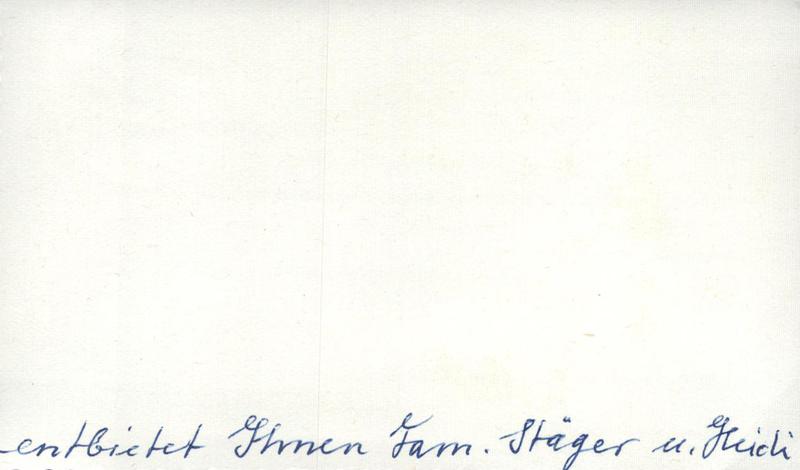 entbietet Ihnen Fam. Stäger u. Heidi